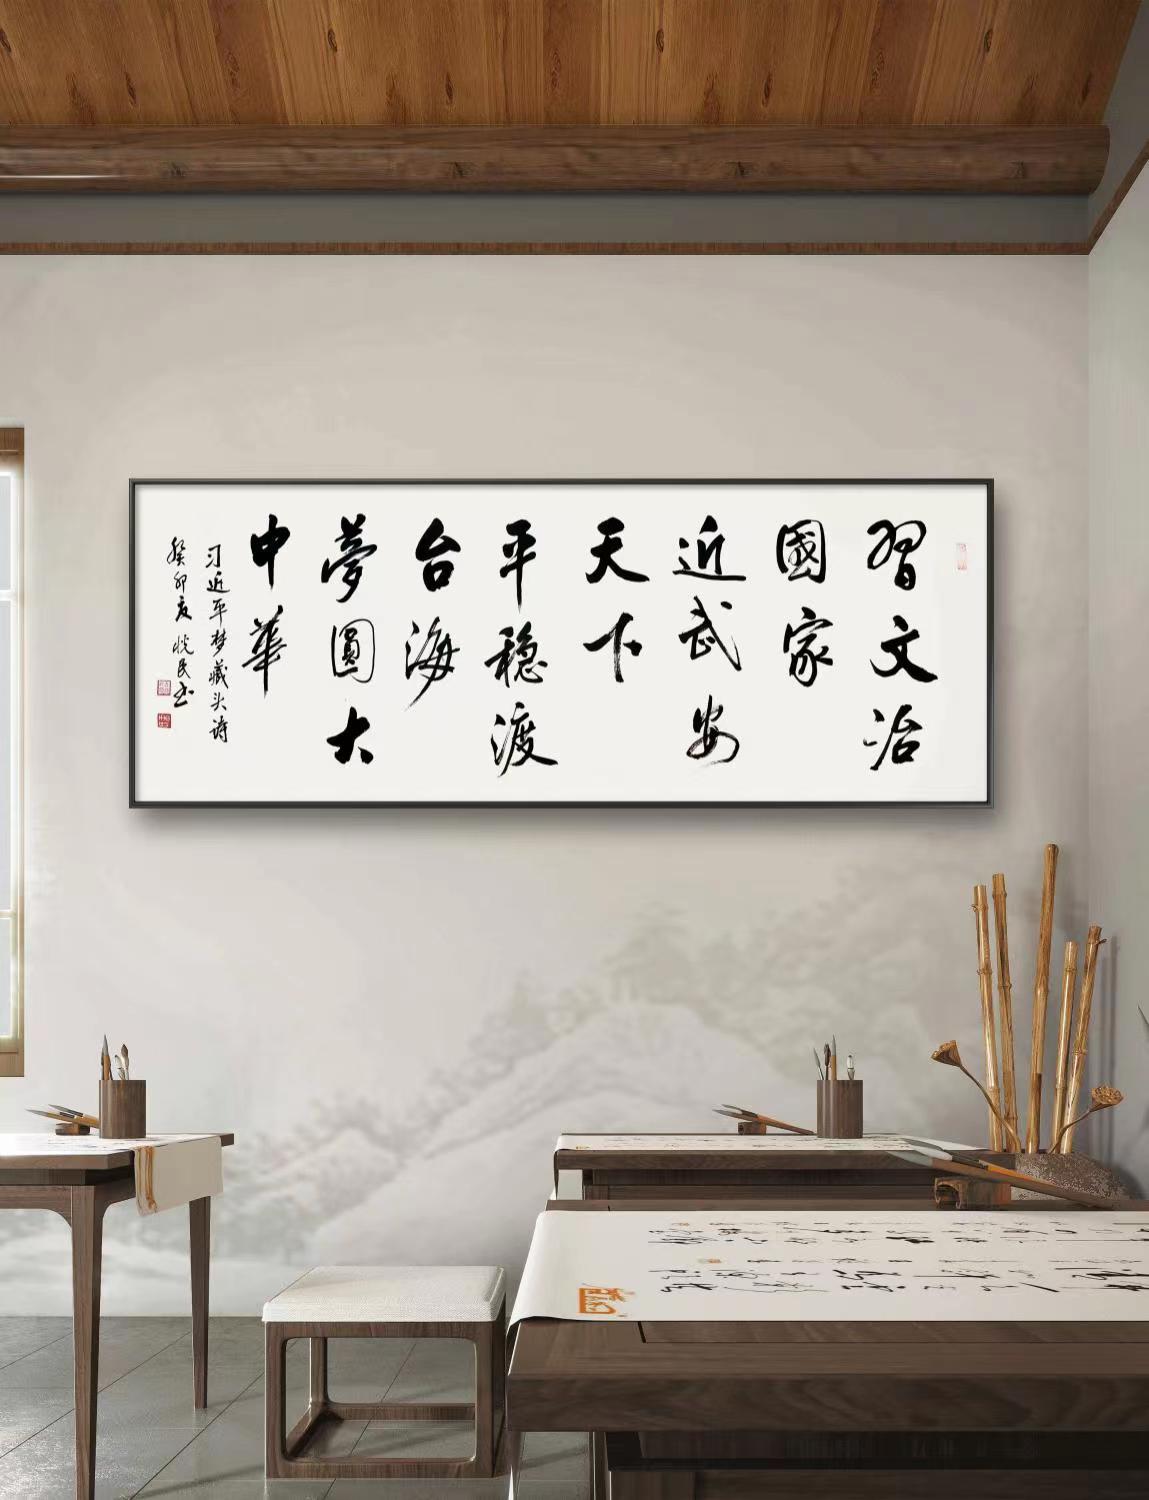 習文治
國家
近武安
天下
平穩渡
台海
夢圓大
中華
习近平梦藏头诗
癸卯夏 悦民书